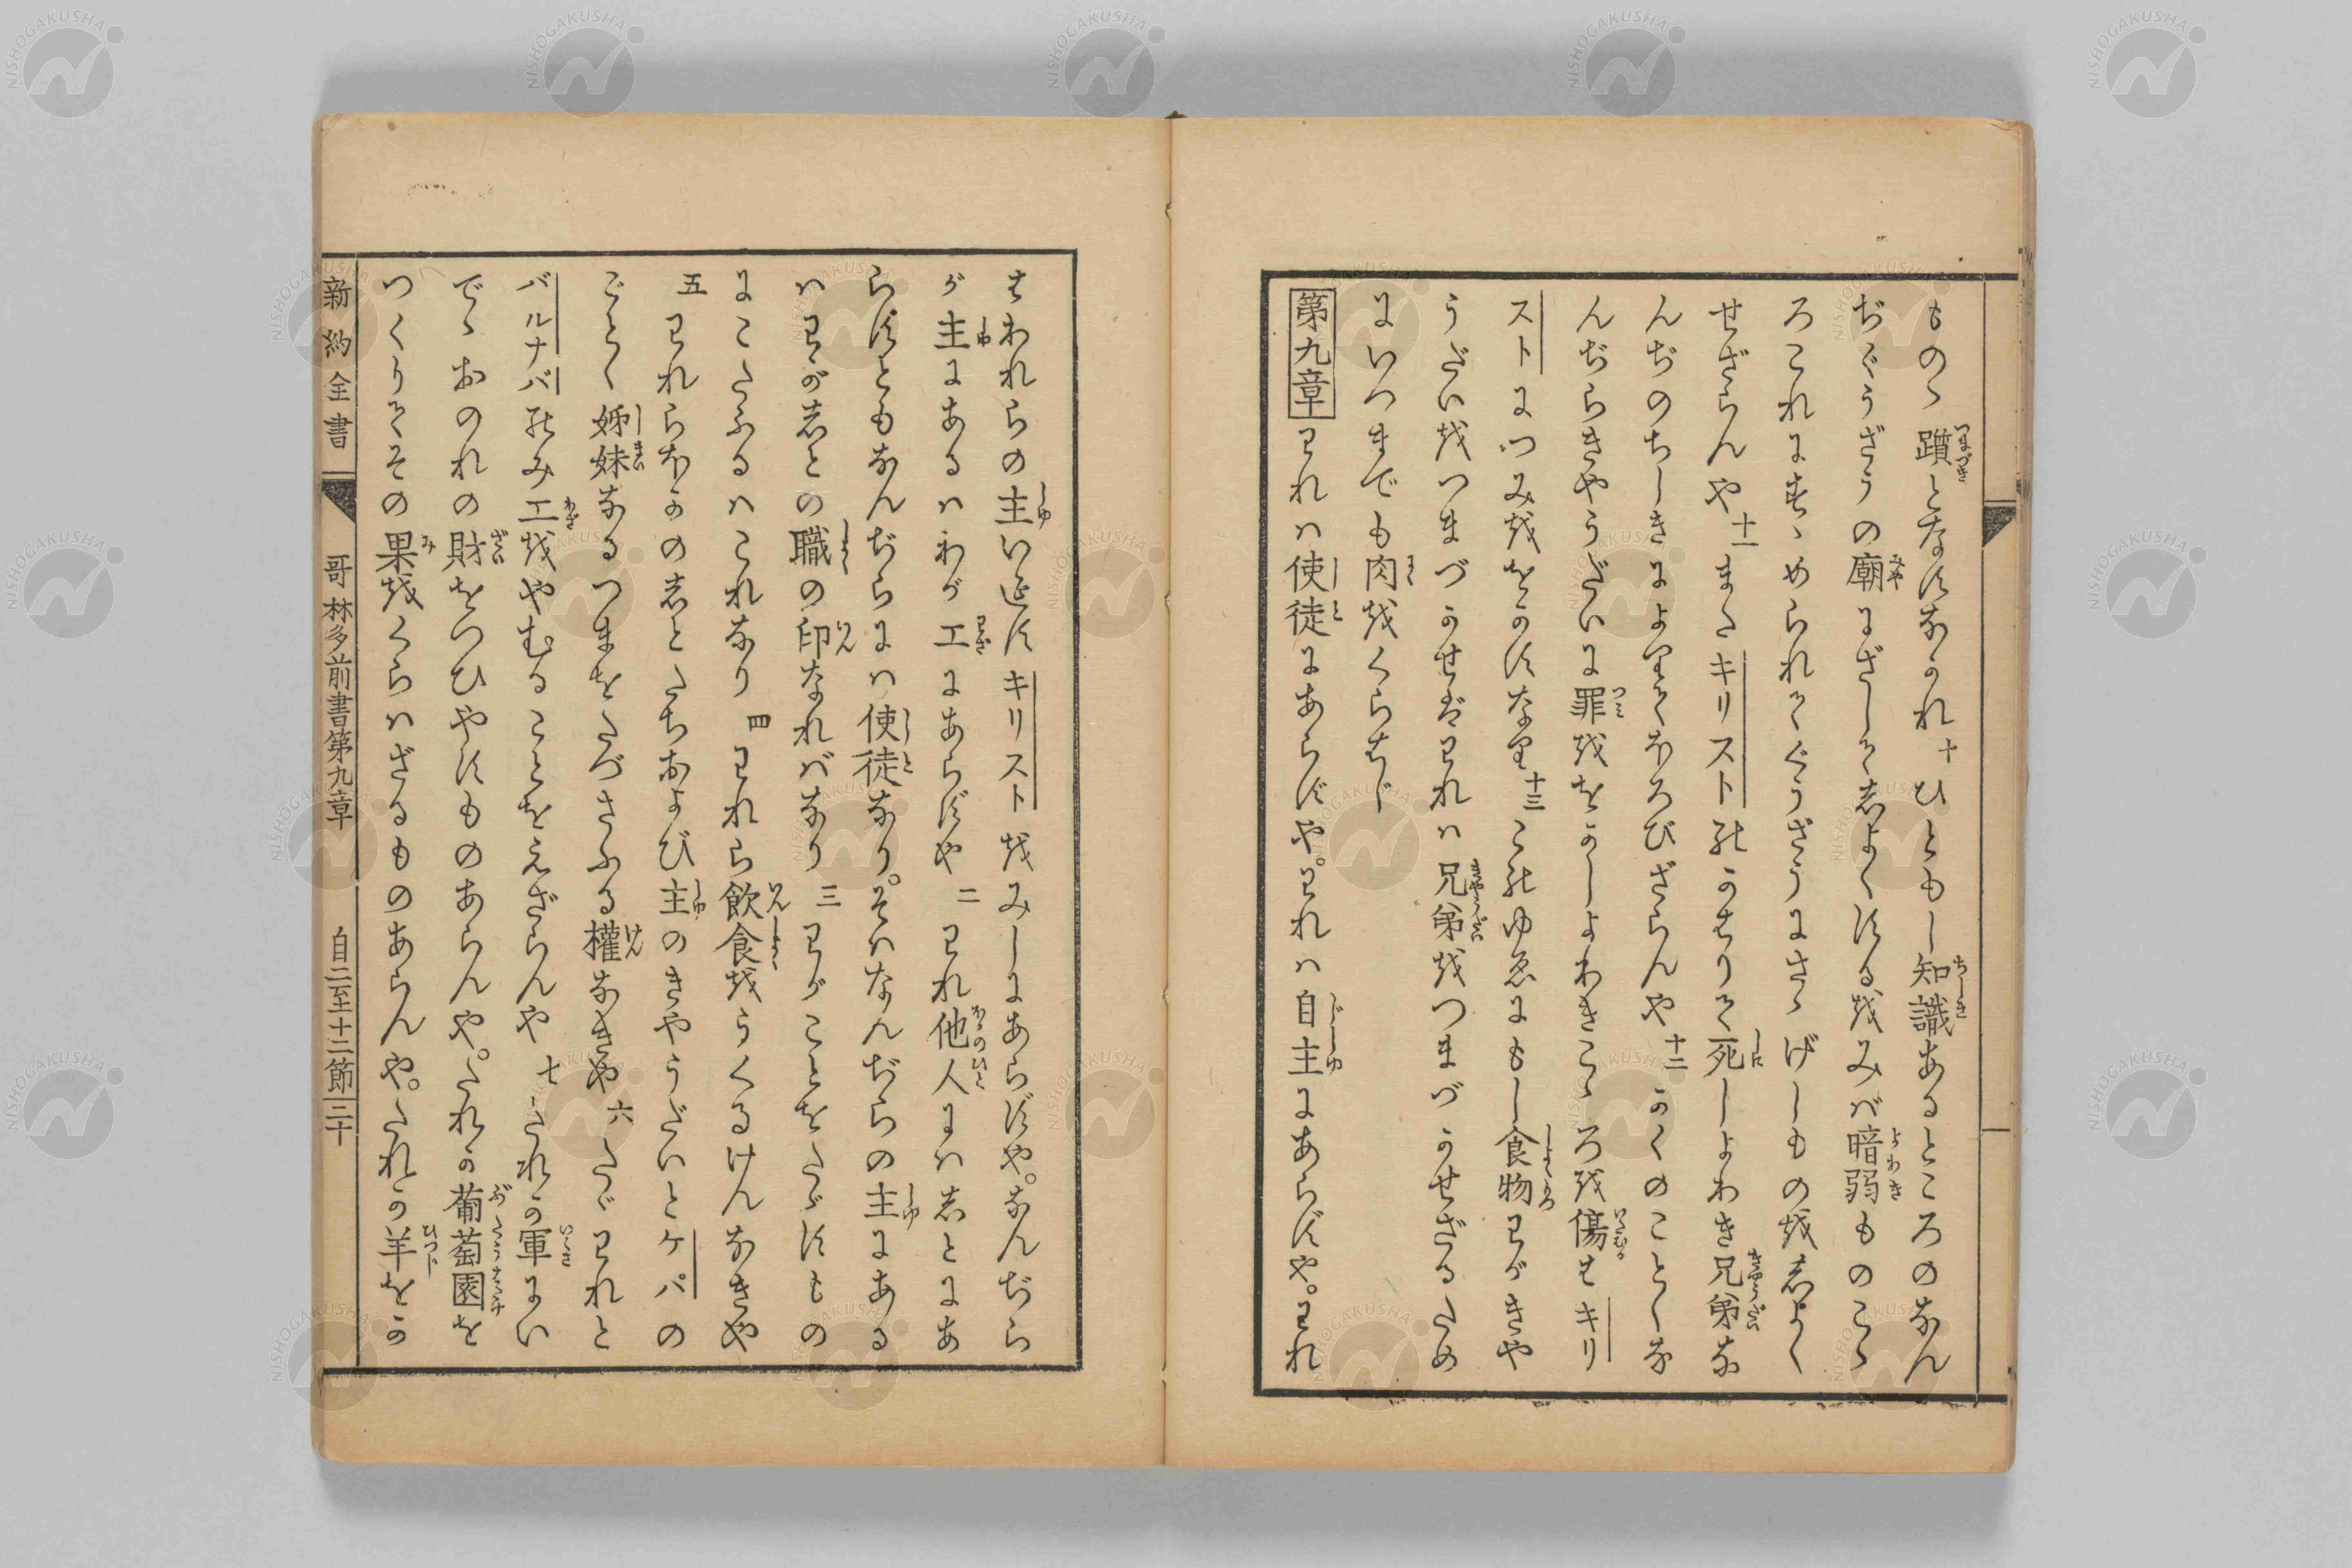 ものゝ蹟となすなかれ十ひともし知識あるところのなん
ぢぐうざうの廟にざして志よくするをみバ暗弱ものこゝ
ろこれにすゝめられてぐうざうにさゝげしものを志よく
せざらんや十一またキリストのかはりて死しよわき兄弟な
んぢのちしきによりてほろびざらんや十二かくのことくな
んぢらきやうだいに罪ををかしよわきこゝろを傷はキリ
ストにつみををかすなり十三このゆゑにもし食物わがきや
うだいをつまづかせバわれハ兄弟をつまづかせざるため
にいつまでも肉をくらはじ
第九章われハ使徒にあらずや。われハ自主にあらずや。われ
はわれらの主いエスキリストをみしにあらずや。なんぢら
が主にあるハわが工にあらずや二われ他人にハ志とにあ
らずともなんぢらにハ使徒なり。そハなんぢらの主にある
ハわが志との職の印なれバなり三わがことをたゞすもの
にこたふるハこれなり四われら飲食をうくるけんなきや
五われらほかの志とたちおよび主のきやうだいとケパの
ごとく姊妹なるつまをたづさふる權なきや六たゞわれと
バルナバのみ工をやむることをえざらんや七たれか軍にい
でゝおのれの財をつひやすものあらんや。たれか葡萄園を
つくりてその果をくらハざるものあらんや。たれか羊をか
新約全書 哥林多前書第九章 自二至十二節 二十